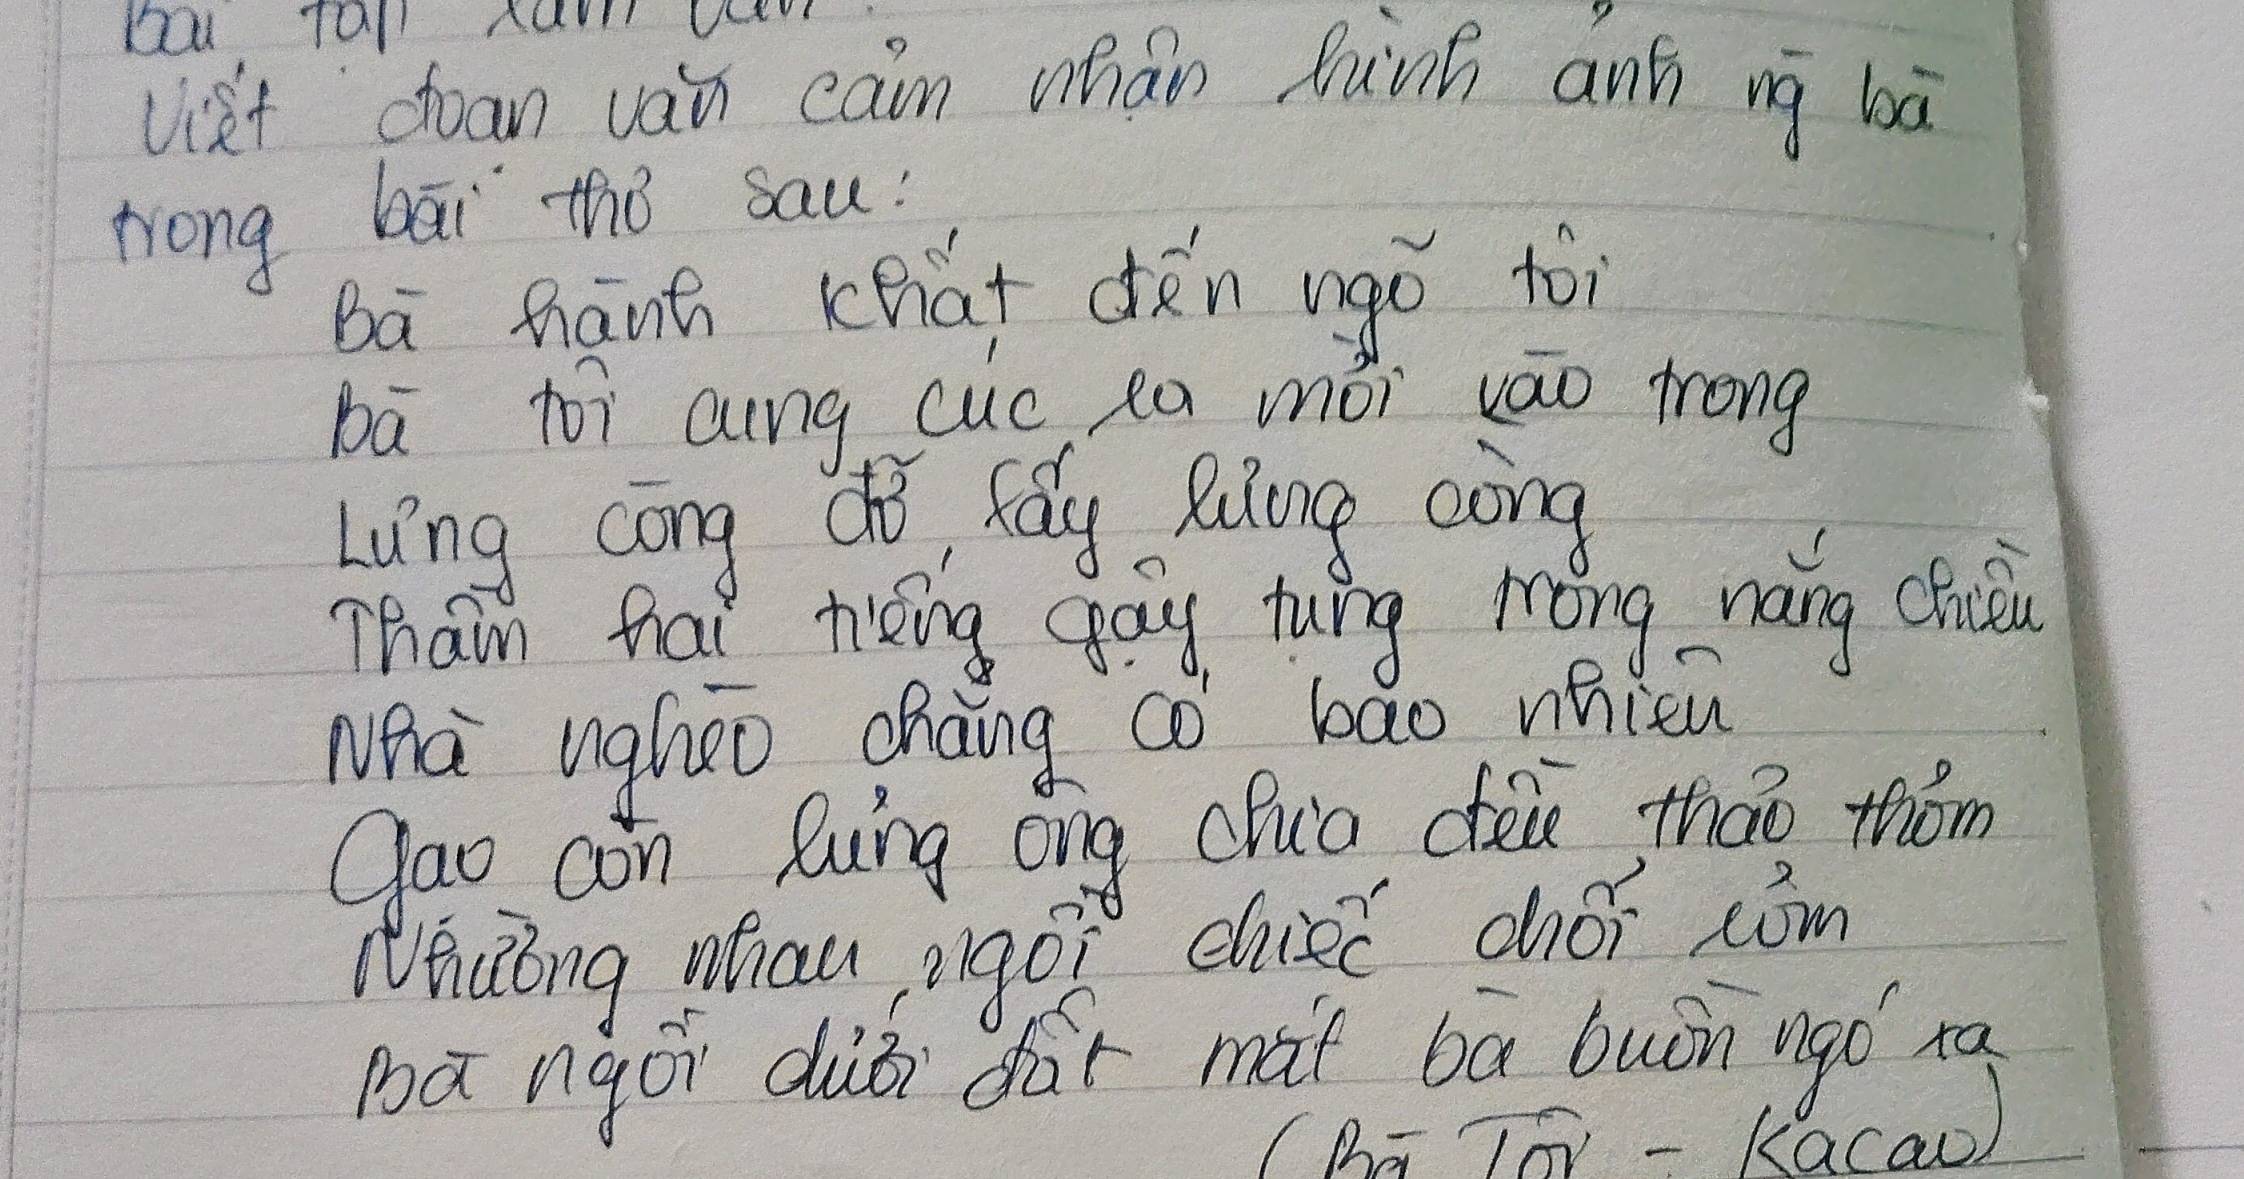 Bài tập
Viết đoạn văn cảm nhận hình ảnh ng bà
trong bài thơ sau:
Bà hành khất đến ngõ tôi
Bà tôi cung cúc ra mời vào trong
Lưng còng đỡ lấy lưng còng
Thầm hai tiếng gậy tụng trong nắng chiều
Nhà nghèo chẳng có bao nhiêu
Gạo còn lưng ống chia đều thảo thơm
Nhường nhau ngồi chiếc chổi rơm
Bà ngồi dưới đất mắt bà buồn ngó ra
(Bà Tôi - Kacao)